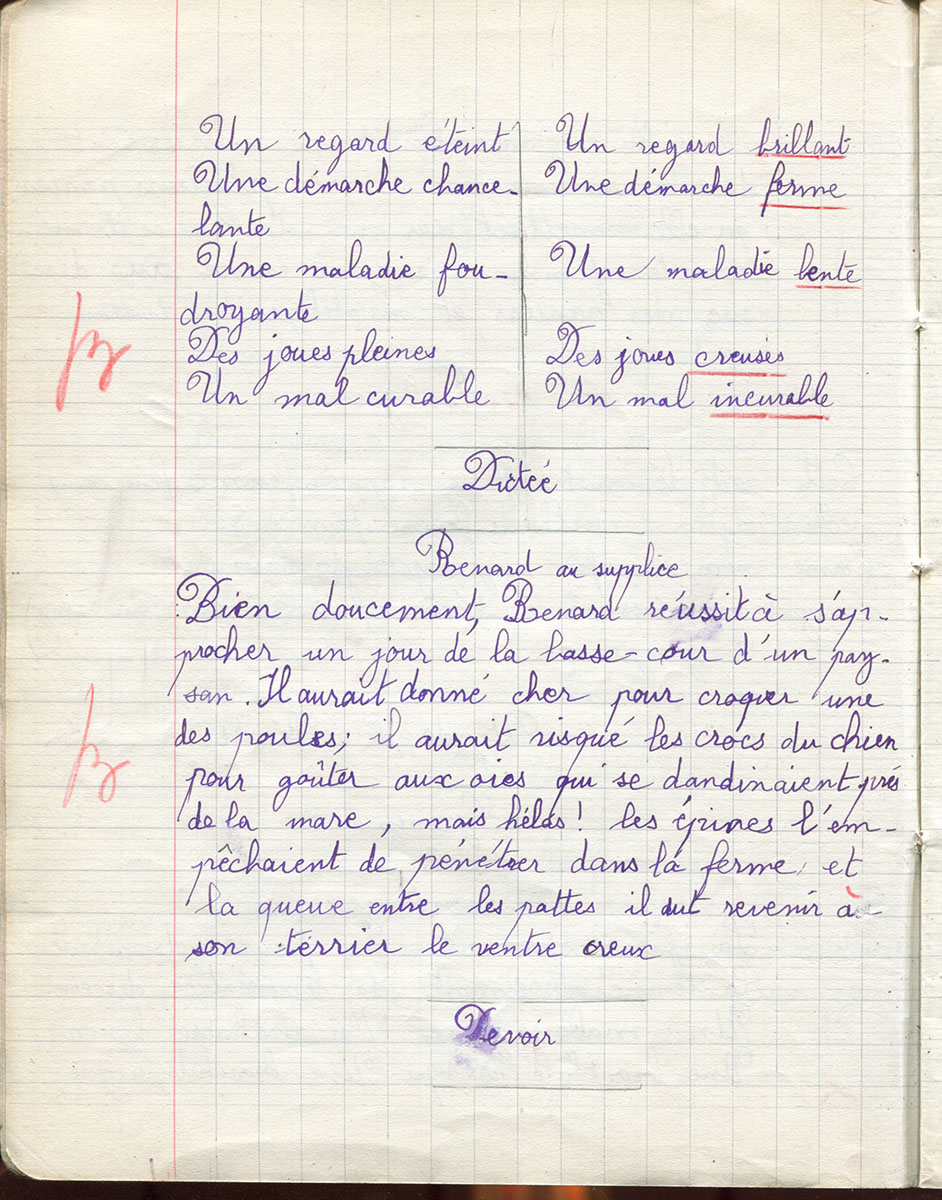 Un regard éteint Un regard brillant
Une démarche chance- Une démarche ferme
lante
Une maladie fou- Une maladie lente
droyante
Des joues pleines Des joues creuses
Un mal curable Un mal incurable
Dictée
Renard au supplice
Bien doucement, Renard réussit à s'ap-
procher un jour de la basse-cour d'un pay-
san. Il aurait donné cher pour croquer une
des poules; il aurait risqué les crocs du chien
pour goûter aux oies qui se dandinaient près
de la mare, mais hélas! les épines l'em-
pêchaient de pénétrer dans la ferme et
la queue entre les pattes il dut revenir à
son terrier le ventre creux
Devoir